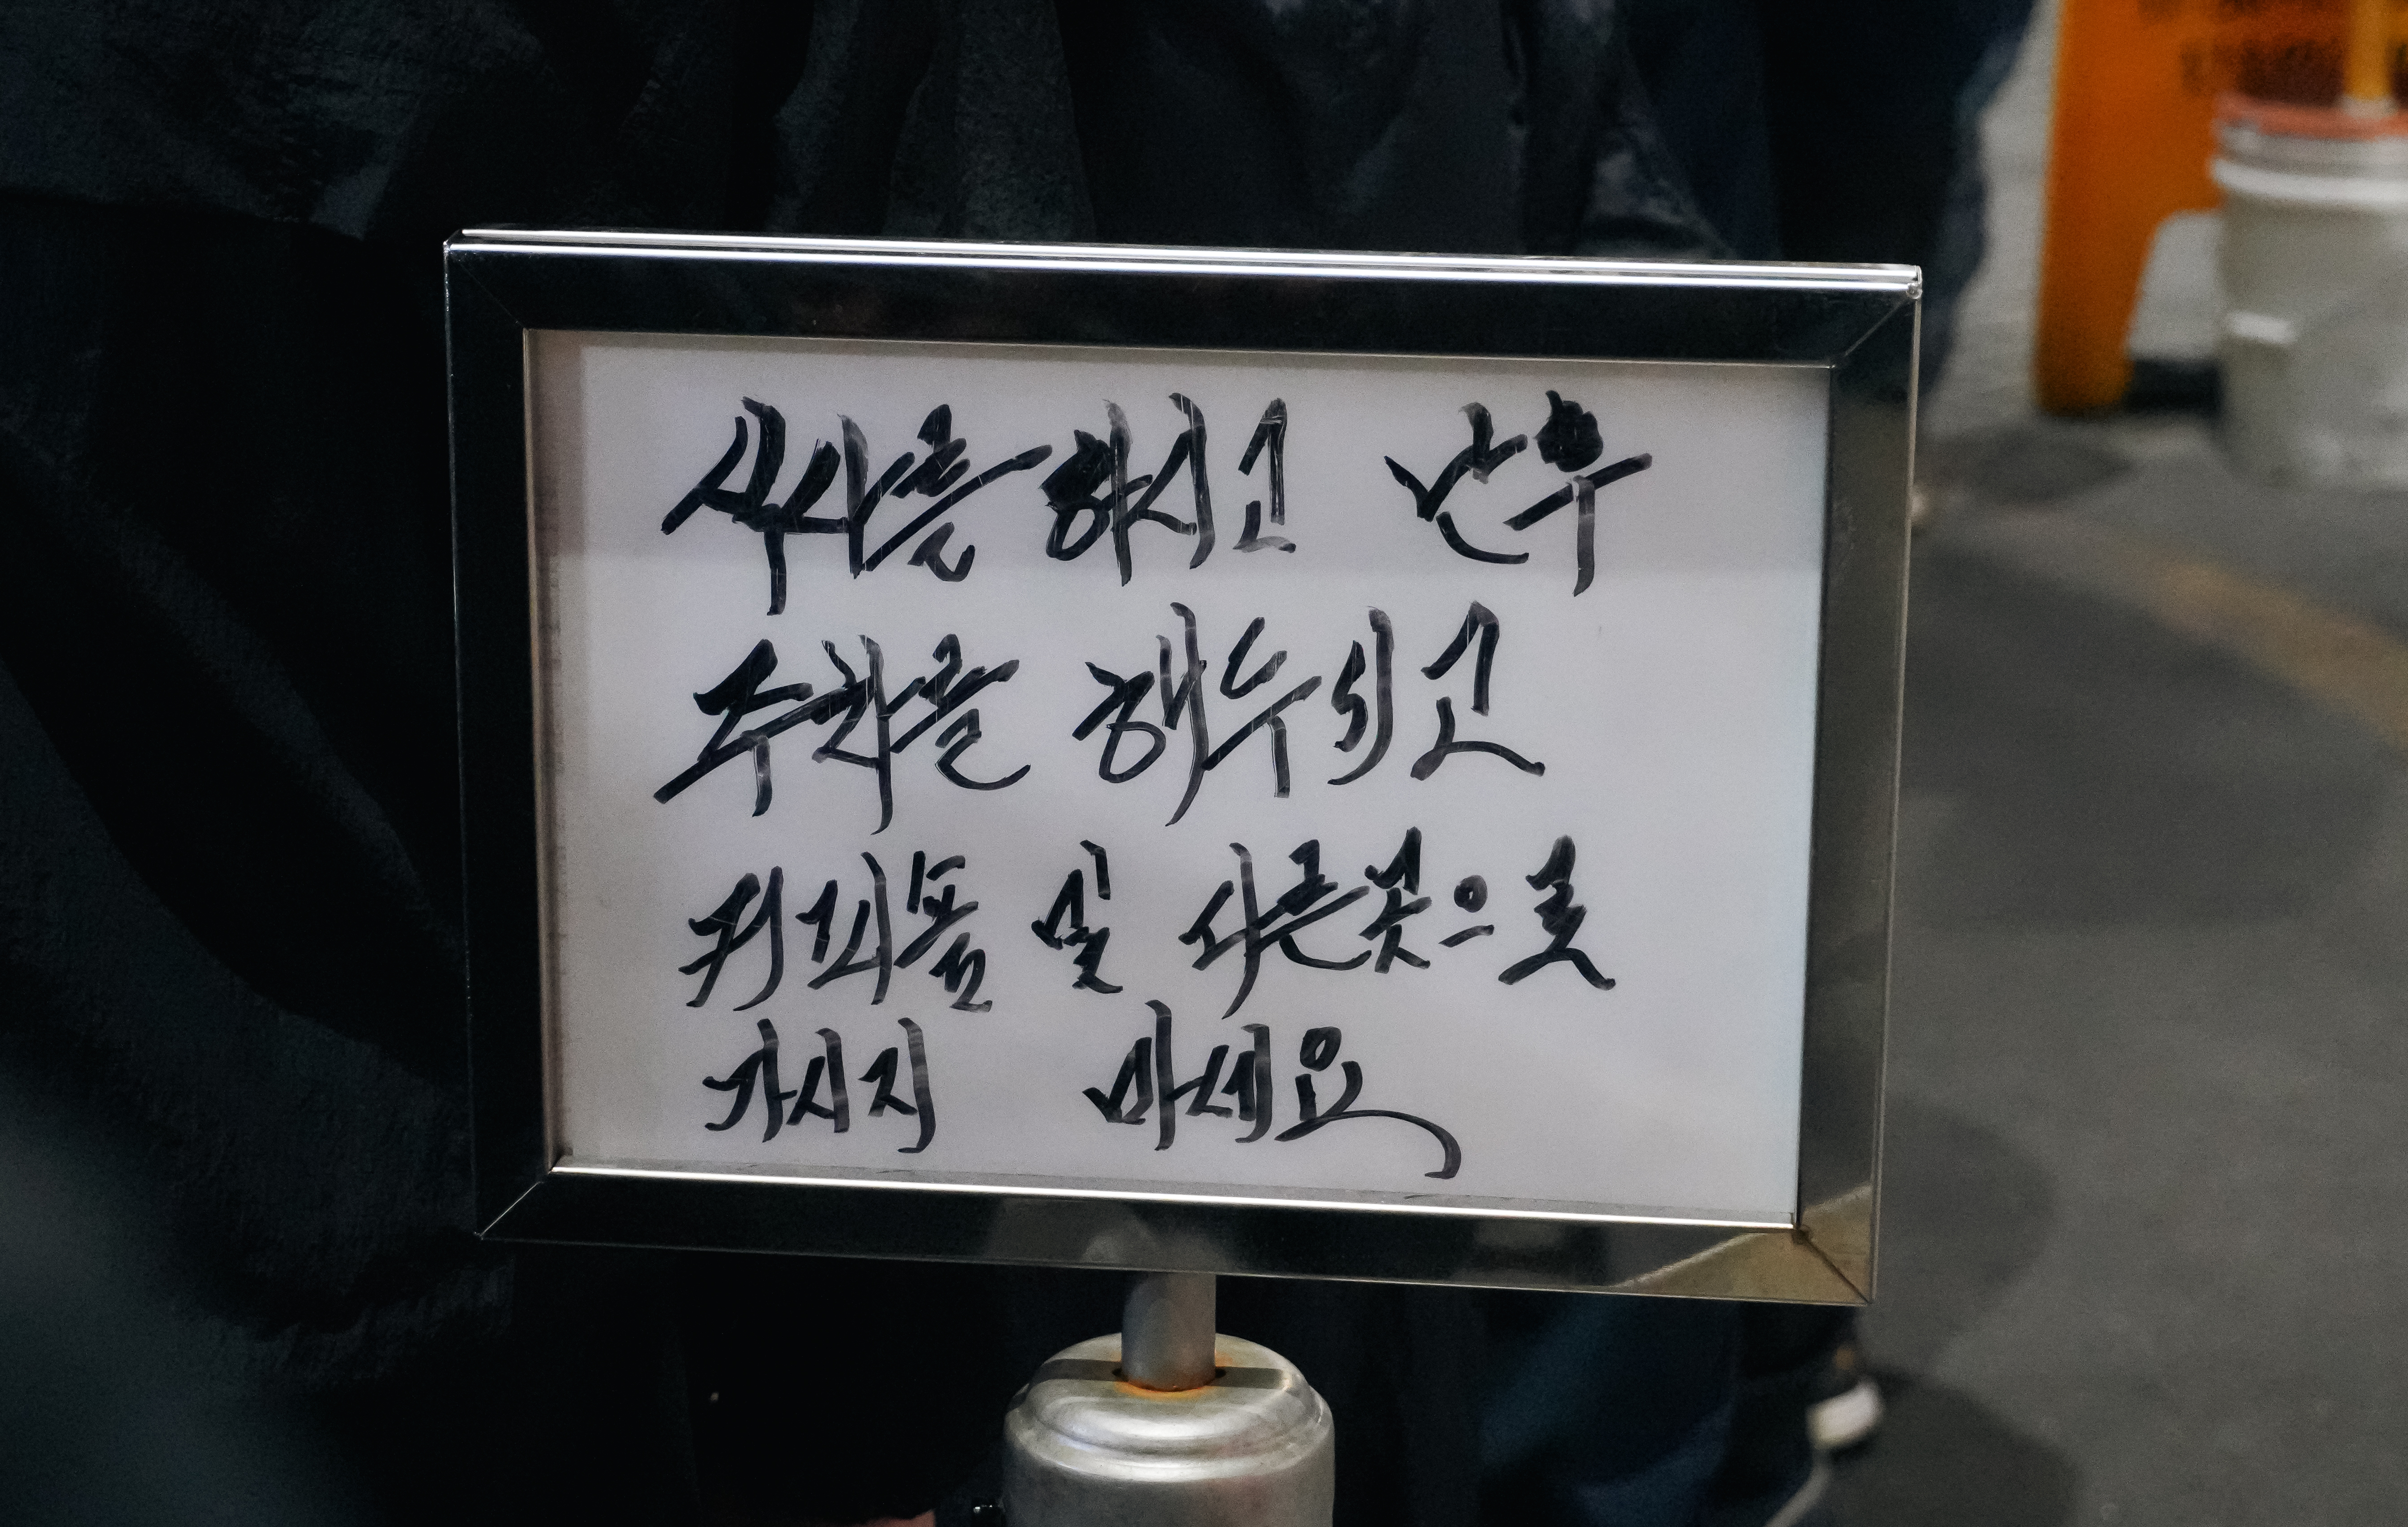 식사를 하시고 난후
주차를 해두시고
커피숍 및 다른곳으로
가시지 마세요